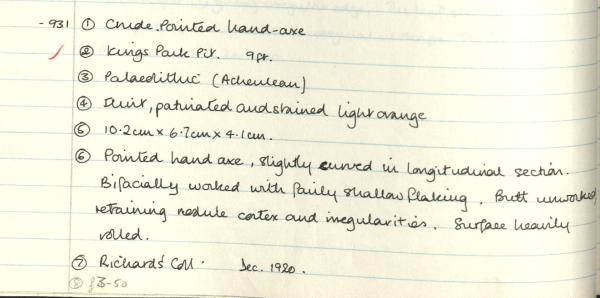 -931 ① Crude Pointed hand-axe
② Kings Park Pit. 9pr.
③ Palaeolithic (Acheulean)
④ Flint, patinated and stained light orange
⑤ 10.2cm x 6.7cm x 4.1cm.
⑥ Pointed hand axe, slightly curved in longitudinal section.
Bifacially worked with fairly shallow flaking. Butt unworked,
retaining nodule cortex and irregularities. Surface heavily
rolled.
⑦ Richards Coll. Dec. 1920.
⑧ £3-50